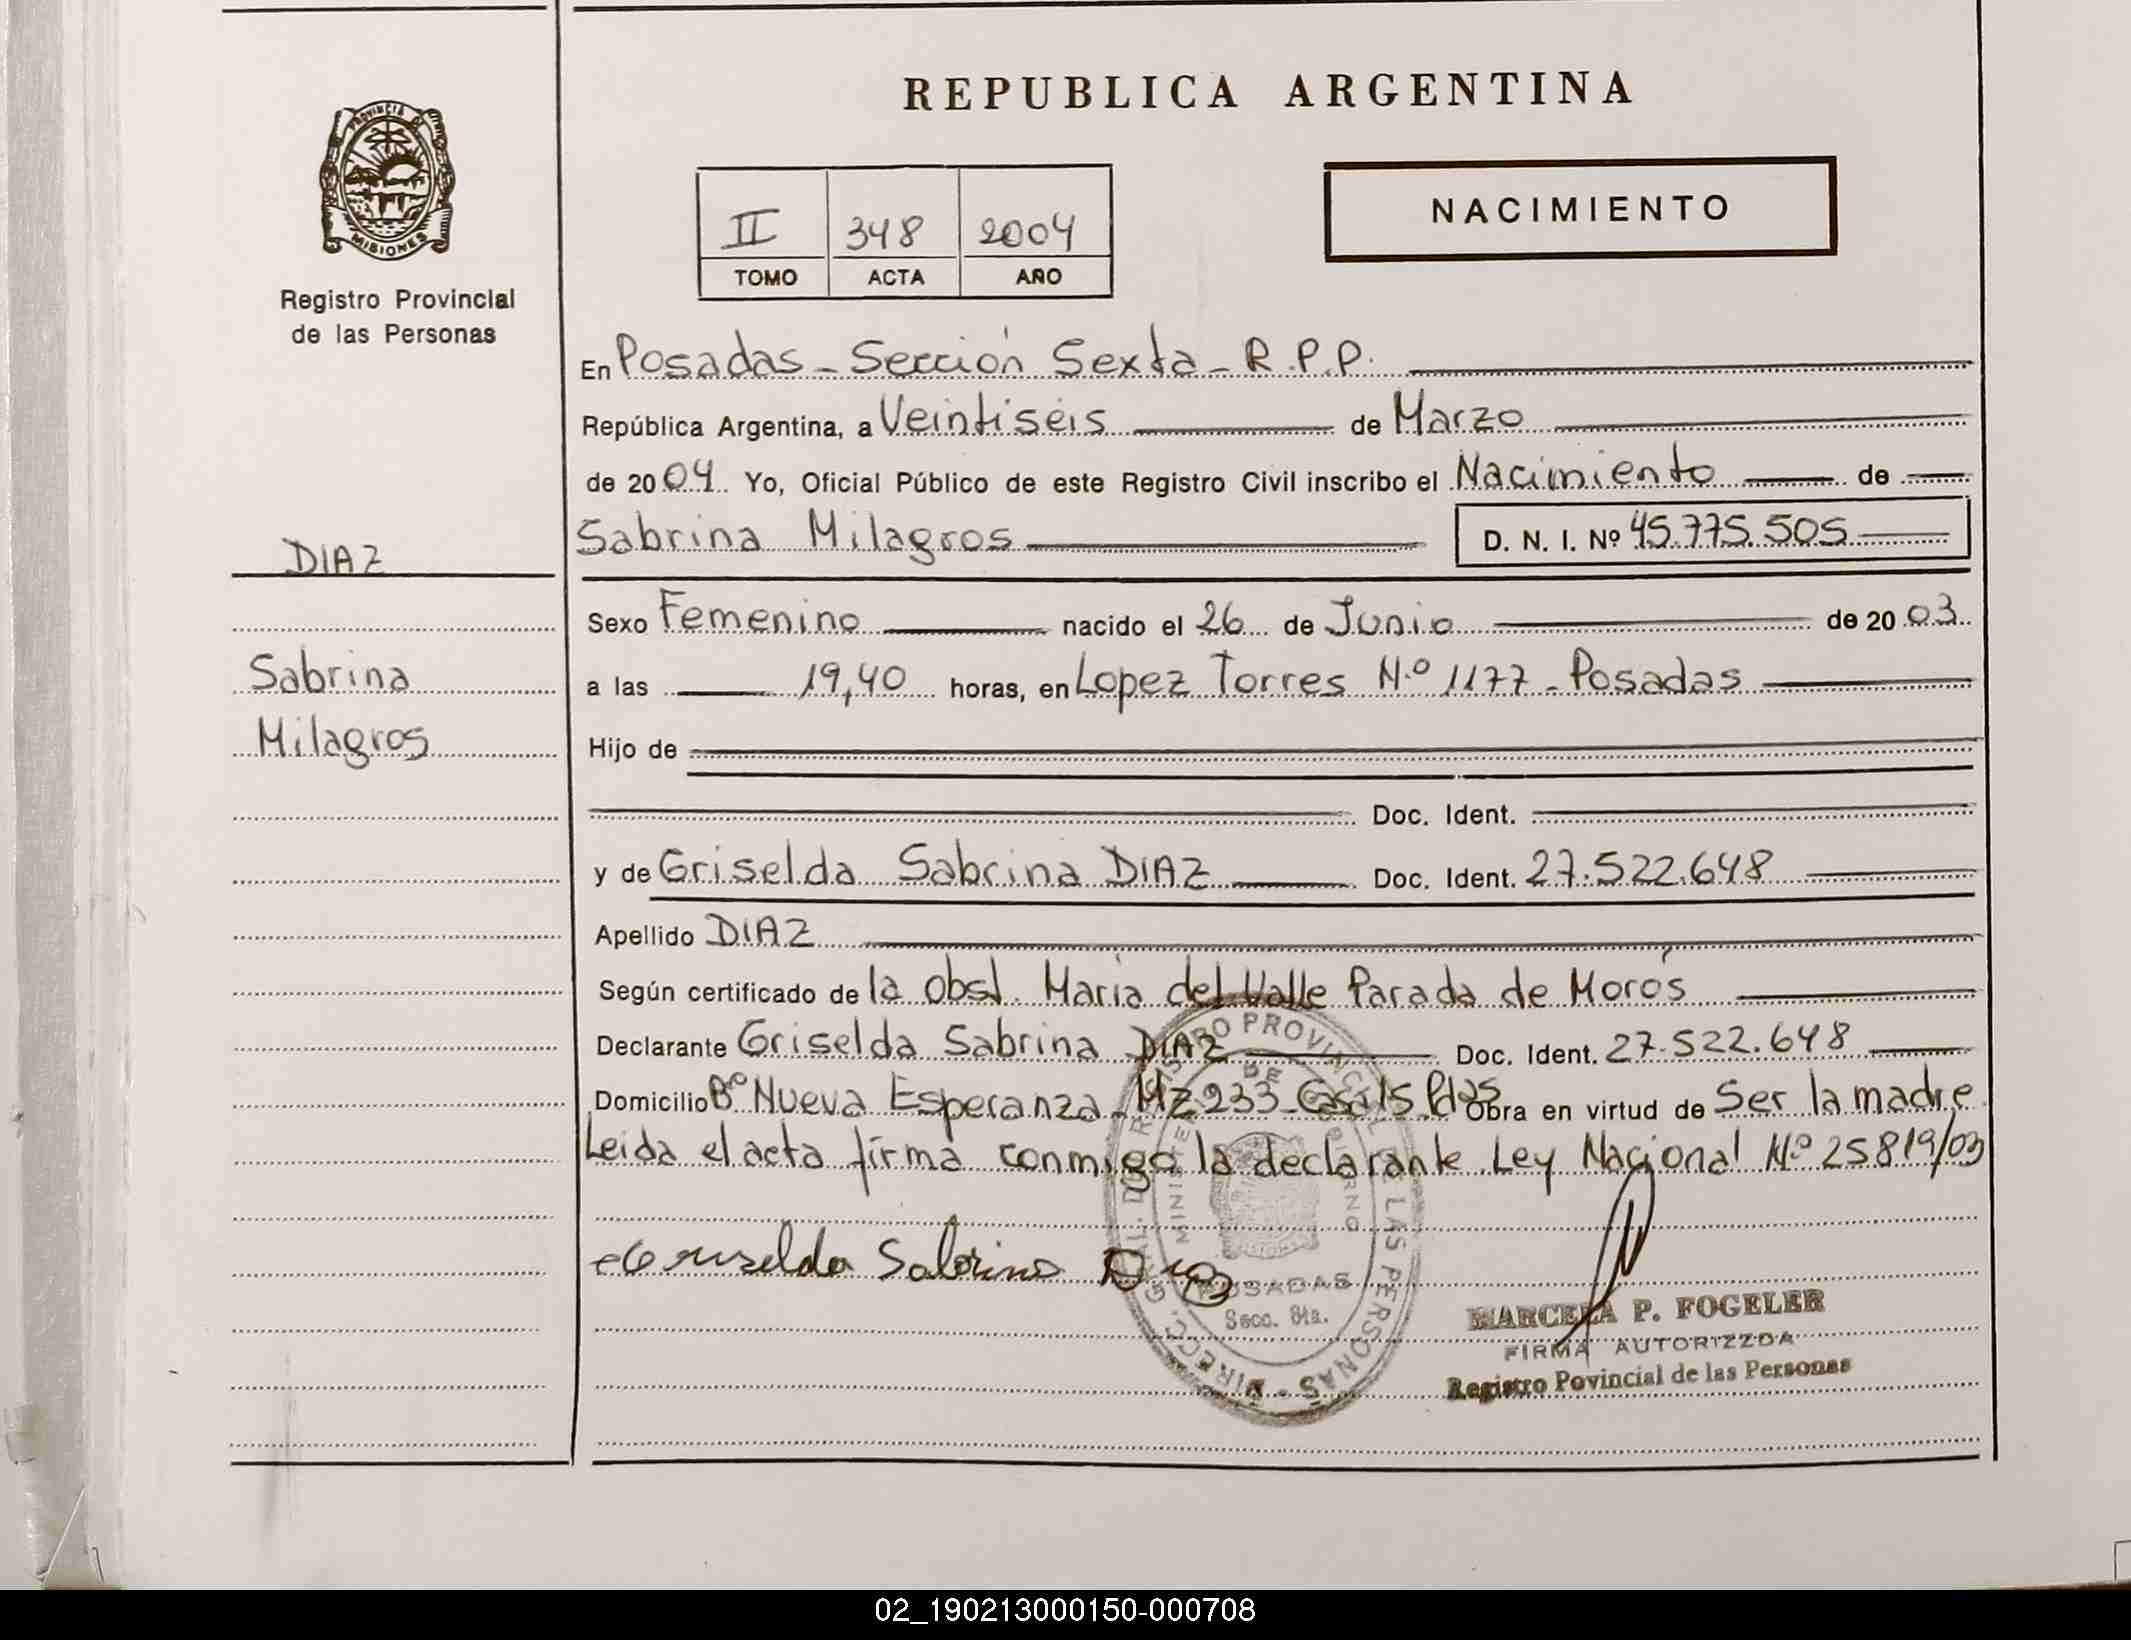 REPUBLICA ARGENTINA
PROVINCIA DE
MISIONES
Registro Provincial
de las Personas
II 348 2004
TOMO ACTA AÑO
NACIMIENTO
En Posadas - Sección Sexta - R.P.P.
República Argentina, a Veintiséis de Marzo
de 2004. Yo, Oficial Público de este Registro Civil inscribo el Nacimiento de
Sabrina Milagros D. N. I. Nº 45.775.505
DIAZ
Sabrina
Milagros
Sexo Femenino nacido el 26 de Junio de 2003
a las 19,40 horas, en Lopez Torres N.º 1177 - Posadas
Hijo de
Doc. Ident.
y de Griselda Sabrina DIAZ Doc. Ident. 27.522.648
Apellido DIAZ
Según certificado de la obst. María del Valle Parada de Morós
Declarante Griselda Sabrina DIAZ Doc. Ident. 27.522.648
Domicilio Bº Nueva Esperanza - Mz 233 - Casa 15 Pdas Obra en virtud de Ser la madre
Leida el acta firma conmigo la declarante Ley Nacional Nº 25819/03
Griselda Sabrina Diaz
DIRECC. GRAL. DEL REGISTRO PROVINCIAL DE LAS PERSONAS
MINISTERIO DE GOBIERNO
POSADAS
Secc. 6ta.
MARCELA P. FOGELER
FIRMA AUTORIZZDA
Registro Povincial de las Personas
02_190213000150-000708